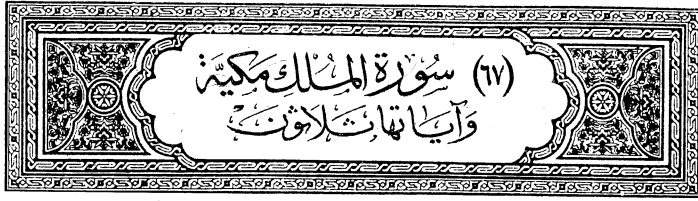 (٦٧) سُورَة المُلك مَكيَّة
وَآيَاتهَا ثَلَاثُونَ